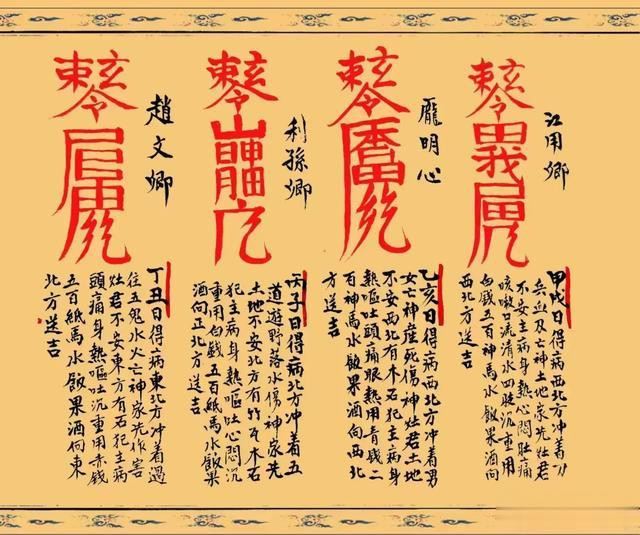 江用卿
甲戌日得病西北方冲着刀
兵血及亡神土地家先灶君
不安主病身熱心悶肚痛
咳嗽口流清水四肢沉重用
白銭五百神馬水飯果酒向
西北方送吉
龎明心
乙亥日得病西北方冲着男
女亡神死傷神灶君土地
不安西北有木石犯主病身
熱嘔吐頭痛眼熱用青銭二
百神馬水飯果酒向西北
方送吉
利孫卿
丙子日得病北方冲着五
道遊野落水傷神家先
土地不安北方有竹瓦木石
犯主病身熱嘔吐心悶沉
重用白銭五百紙馬水飯果
酒向正北方送吉
趙文卿
丁丑日得病東北方冲着過
往五鬼水火亡神家先作害
灶君不安東方有石犯主病
頭痛身熱嘔吐沉重用赤銭
五百紙馬水飯果酒向東
北方送吉